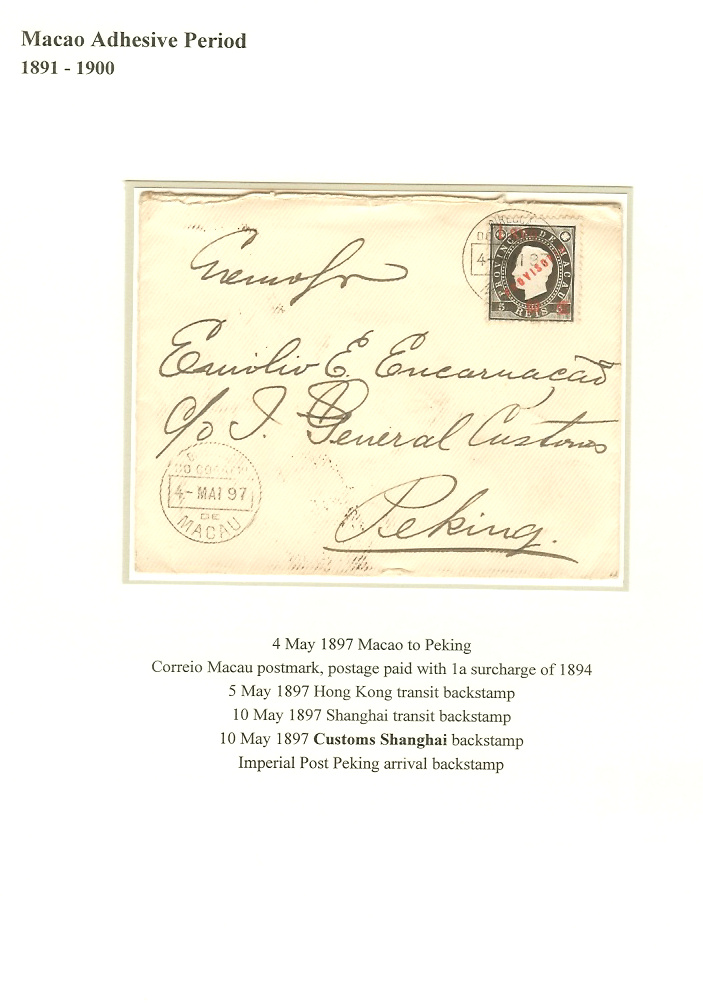 Macao Adhesive Period
1891 - 1900
PROVINCIA DE MACAU
PROVISORIO
5 REIS 5
4-
Emilio E. Encarnação
c/o I. General Customs
4- MAI 97
DE
MACAU
Peking.
4 May 1897 Macao to Peking
Correio Macau postmark, postage paid with 1a surcharge of 1894
5 May 1897 Hong Kong transit backstamp
10 May 1897 Shanghai transit backstamp
10 May 1897 Customs Shanghai backstamp
Imperial Post Peking arrival backstamp